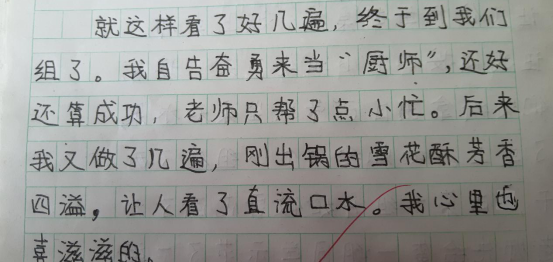 就这样看了好几遍，终于到我们
组了。我自告奋勇来当“厨师”，还好
还算成功，老师只帮了点小忙。后来
我又做了几遍，刚出锅的雪花酥芳香
四溢，让人看了直流口水。我心里也
喜滋滋的。